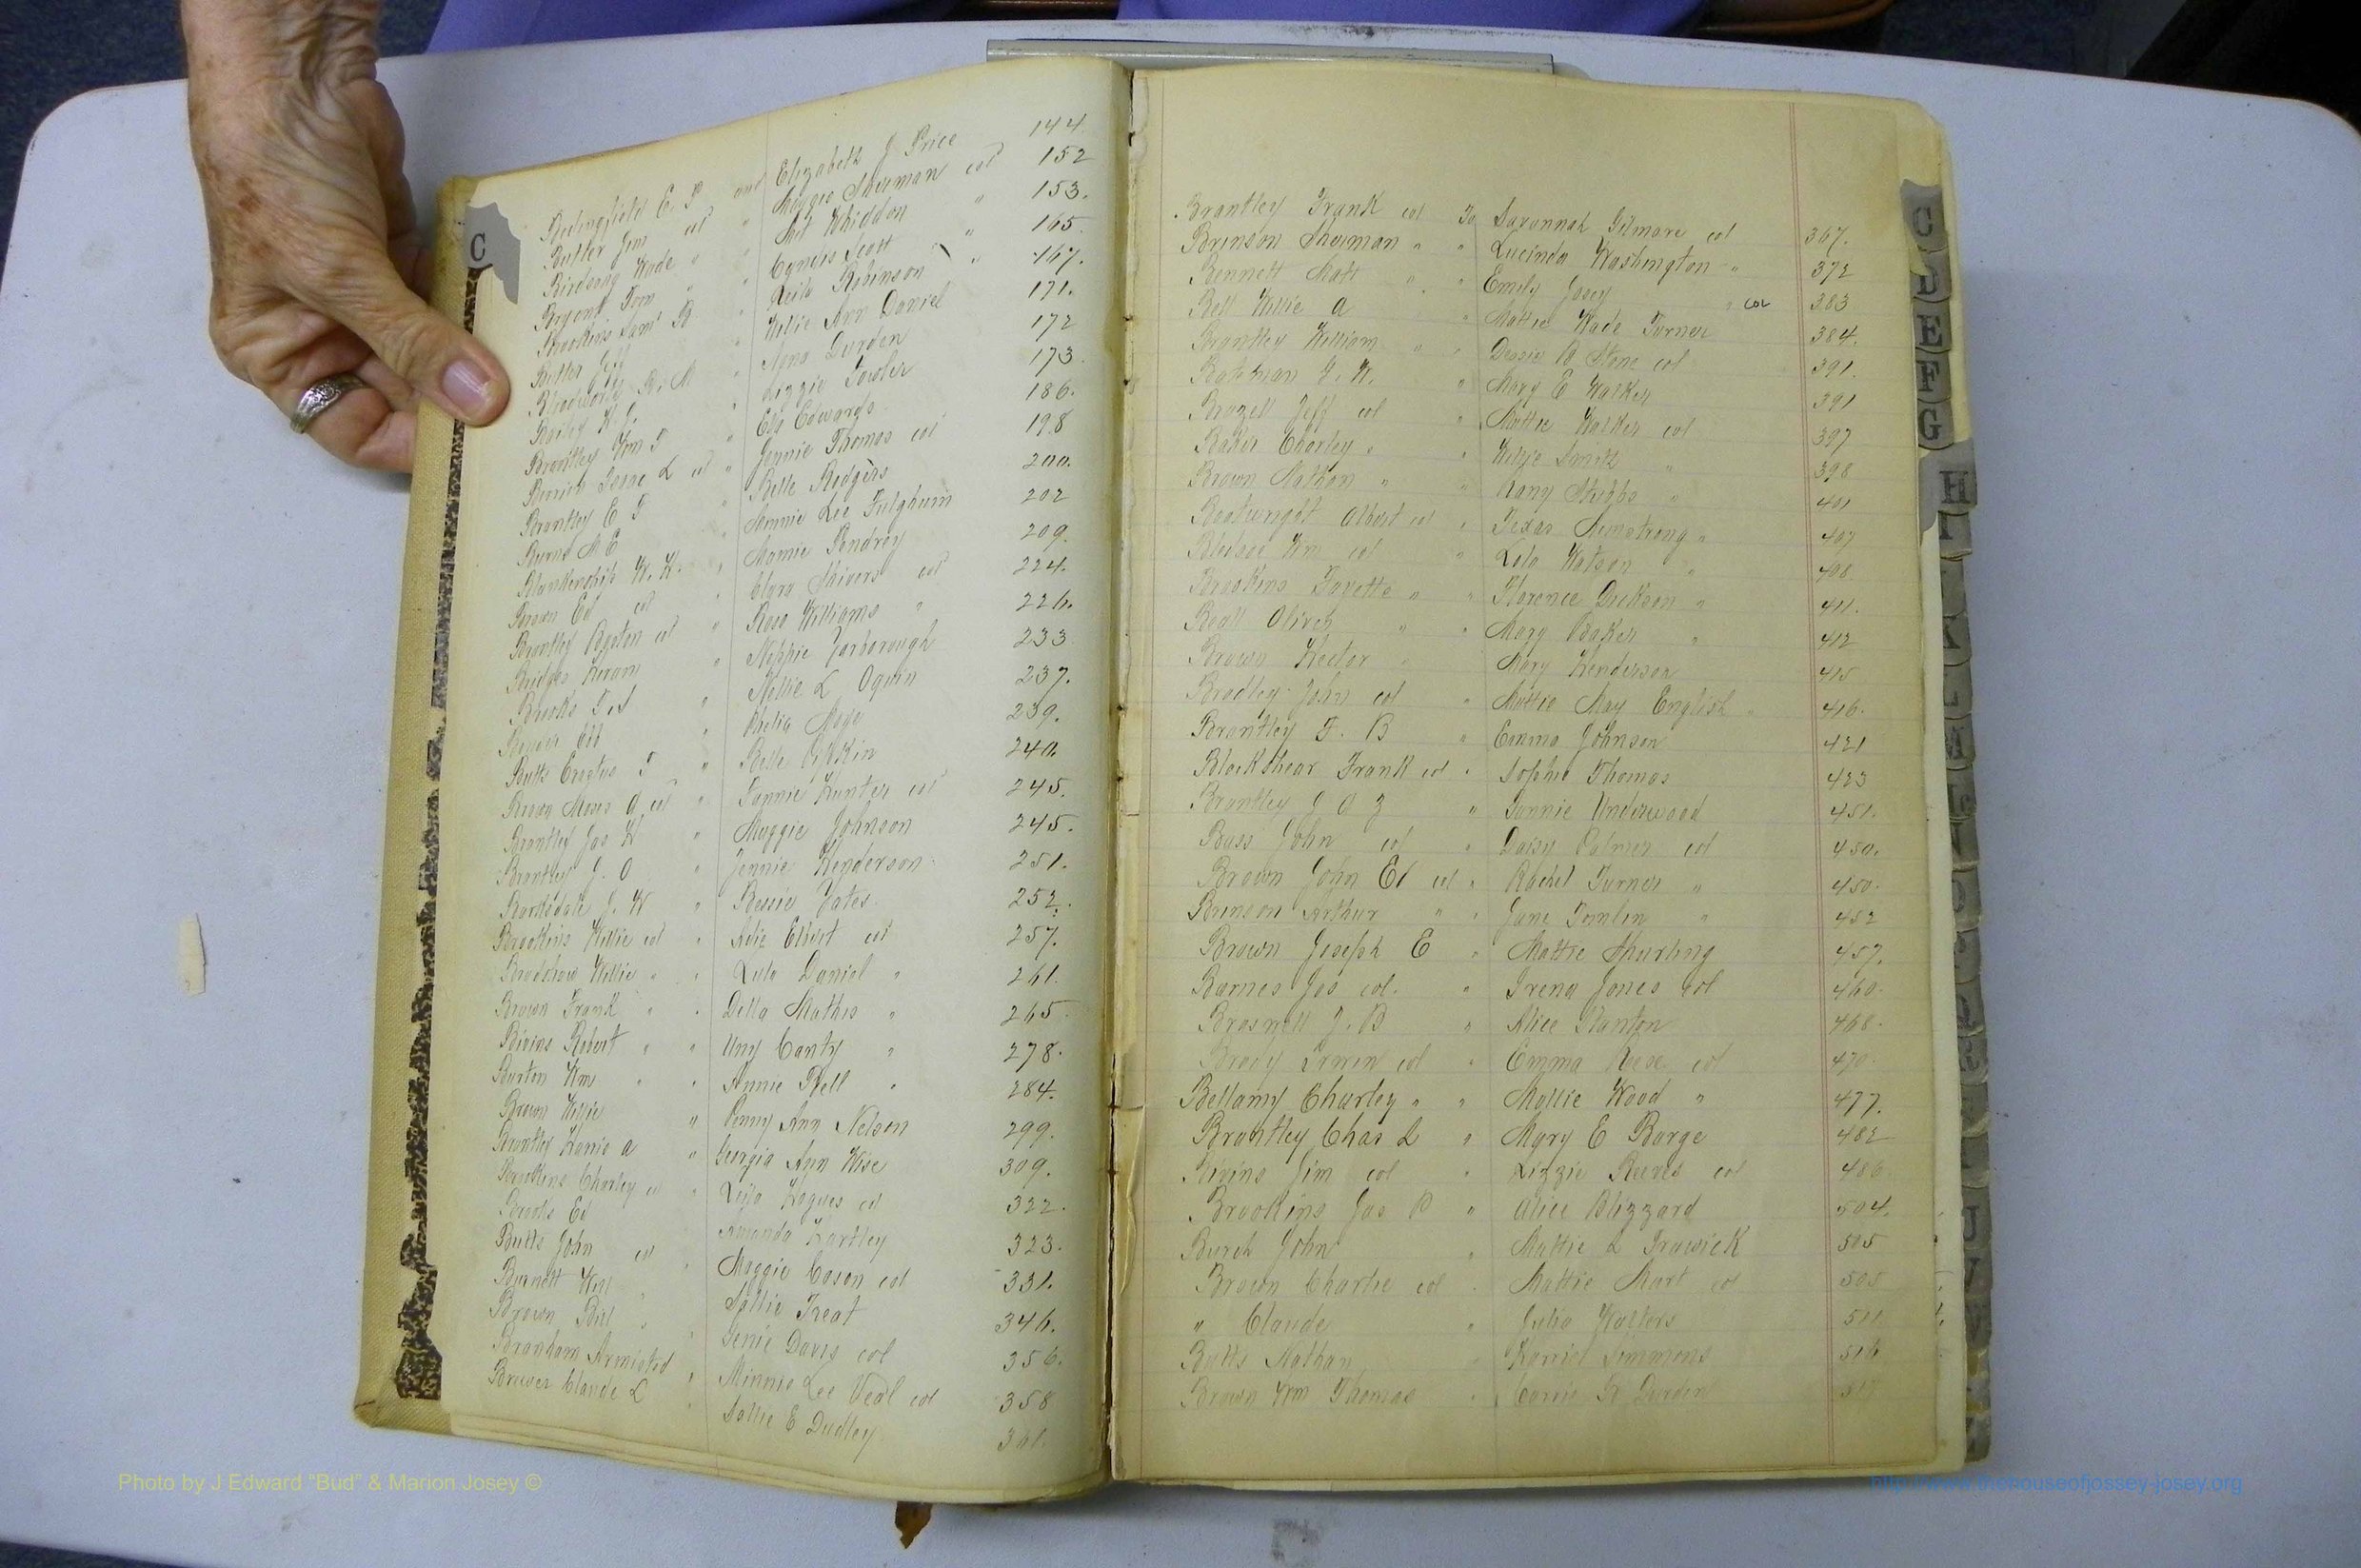 C
Bedingfield E. P and Elizabeth J Price 144
Butler Jim col " Maggie Sherman col 152
Birdsong Wade " " Whiddon " 153.
Bryant Tom " " Scott " 165
Brookins Saml B. " Leila Robinson " 167.
Butler Jeff " Willie Ann Daniel 171.
Bloodworth R. M " Nena Durden 172
Bailey " Lizzie Fowler 173
Brantley Wm T " Ela Edwards 186.
Jesse L col " Jennie Thomas col 198
Brantley E T " Belle Rodgers 200.
Burns M E " Annie Lee Fulghum 202
Blankenship W. H. " Mamie Pendrey 209.
Brown Ed col " Clara Shivers col 224.
Brantley col " Rosa Williams " 226.
Bridges Hiram " Yarborough 233
Brooks Ted " Nellie L Oquin 237.
" 239.
Butts Erastus T " Belle 240.
Brown Moses A col " Fannie Hunter col 245.
Brantley Jas H " Maggie Johnson 245.
Brantley J. O " Jennie Henderson 251.
Barksdale J. W " Bessie Yates 252.
Brookins Willie col " Elbert col 257.
Bradshaw Willie " " Lula Daniel " 261.
Brown Frank " " Della Mathis " 265
Bivins Robert " " Canty " 278.
Burton Wm " " Annie Bell " 284.
Brown Willie " Penny Ann Nelson 299.
Brantley A " Georgia Ann Wise 309.
Brookins Charley col " Leila Hogues col 322.
Brooks Ed Amanda Hartley 323.
Butts John col " Maggie Cason col 331.
Bennett Will " Sallie Treat 346.
Brown Bill " " Genie Davis col 356.
Branham Armisted " Minnie Lee Veal col 358
Brewer Claude L " Sallie E Dudley 361.
Brantley Frank col To Savannah Gilmore col 367.
Brinson Sherman " " Lucinda Washington " 372
Bennett Matt " " Emily Josey " col 383
Bell Willie A " Mattie Wade Turner 384.
Brantley William " " Dessie B Stone col 391.
Bateman J. W. " Mary E Walker 391
Brazell Jeff col " Mattie Walker col 397
Baker Charley " " Willie Smith " 398
Brown Nathan " " Stubbs " 401
Boatwright Albert col " Texas Armstrong " 407
Bledsoe Wm col " Lola Watson " 408
Brookins Favette " " Florence Dickson " 411.
Beall Oliver " " Mary Baker " 412
Brown Hector " Mary Henderson 415
Bradley John col " Mattie May English " 416.
Brantley F. B " Emma Johnson 421
Blackshear Frank col " Sophie Thomas 423
Brantley J O Z " Fannie Underwood 451.
Bass John col " Daisy Palmer col 450.
Brown John Ed col " Rachel Turner " 450.
Brinson Arthur " " Jane Tomlin " 452
Brown Joseph E " Mattie Spurling 457.
Barnes Jas col. " Irena Jones col 460.
Brasnell J. B " Alice Stanton 468.
Brady Irwin col " Emma Rose col 470.
Bellamy Charley " " Mollie Wood " 477.
Brantley Chas L " Mary E Barge 482
Bivins Jim col " Lizzie Reeves col 486
Brookins Jas B " Alice Blizzard 504.
Burch John " Mattie L Trawick 505
Brown Charlie col " Mattie Hart col 505
" Claude " Julia Walters 511
Butts Nathan " Simmons 516
Brown Wm Thomas " Carrie H Durden 517
C
D
E
F
G
H
U
V
Photo by J Edward “Bud” & Marion Josey ©
http://www.thehouseofjossey-josey.org